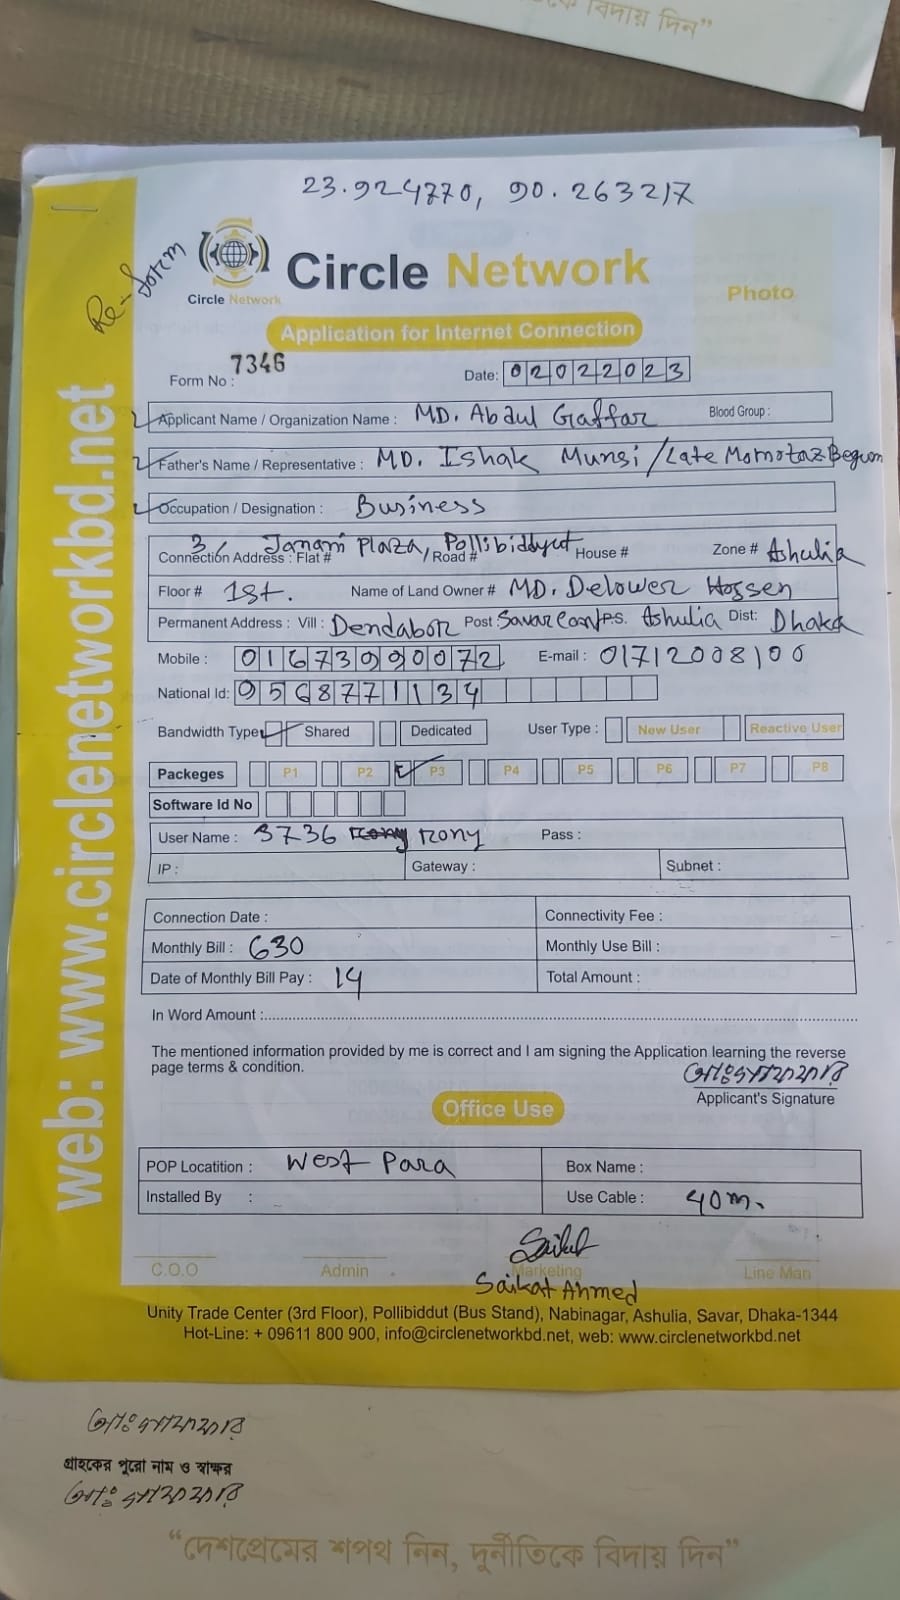 তিকে বিদায় দিন”
23.924770, 90.263217
Re-form
Circle Network
Circle Network
Photo
Application for Internet Connection
Form No : 7346
Date: 02022023
Applicant Name / Organization Name : MD. Abdul Gaffar Blood Group :
Father's Name / Representative : MD. Ishak Munsi / Late Momotaz Begum
Occupation / Designation : Business
3/ Janani Plaza, Pollibiddyut
Connection Address : Flat # / Road # House # Zone # Ashulia
Floor # 1st. Name of Land Owner # MD. Delower Hossen
Permanent Address : Vill : Dendabor Post : Savar Cant PS. Ashulia Dist: Dhaka
Mobile : 01673990072 E-mail : 01712008100
National Id: 0568771134
Bandwidth Type Shared Dedicated User Type : New User Reactive User
Packeges P1 P2 P3 P4 P5 P6 P7 P8
Software Id No
User Name : 3736 rony Pass :
IP : Gateway : Subnet :
Connection Date : Connectivity Fee :
Monthly Bill : 630 Monthly Use Bill :
Date of Monthly Bill Pay : 14 Total Amount :
In Word Amount :
The mentioned information provided by me is correct and I am signing the Application learning the reverse
page terms & condition.
Applicant's Signature
Office Use
POP Locatition : West Para Box Name :
Installed By : Use Cable : 40m.
C.O.O Admin Marketing Line Man
Saikat Ahmed
Unity Trade Center (3rd Floor), Pollibiddut (Bus Stand), Nabinagar, Ashulia, Savar, Dhaka-1344
Hot-Line: + 09611 800 900, info@circlenetworkbd.net, web: www.circlenetworkbd.net
web: www.circlenetworkbd.net
গ্রাহকের পুরো নাম ও স্বাক্ষর
“দেশপ্রেমের শপথ নিন, দুর্নীতিকে বিদায় দিন”